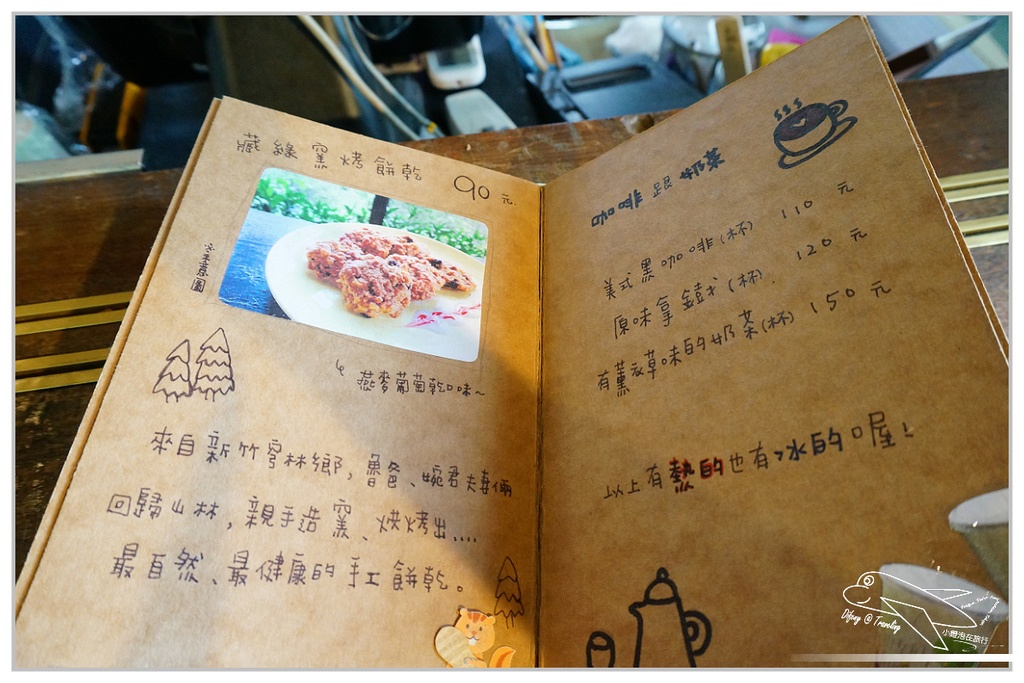 藏緣窯烤餅乾 90元.
燕麥葡萄乾口味~
來自新竹芎林鄉,魯爸、婉君夫妻倆
回歸山林,親手造窯、烘烤出....
最自然、最健康的手工餅乾。
咖啡跟奶茶
美式黑咖啡(杯) 110 元
原味拿鐵(杯) 120 元
有薰衣草味的奶茶(杯) 150 元
以上有熱的也有冰的喔!
小燈泡在旅行